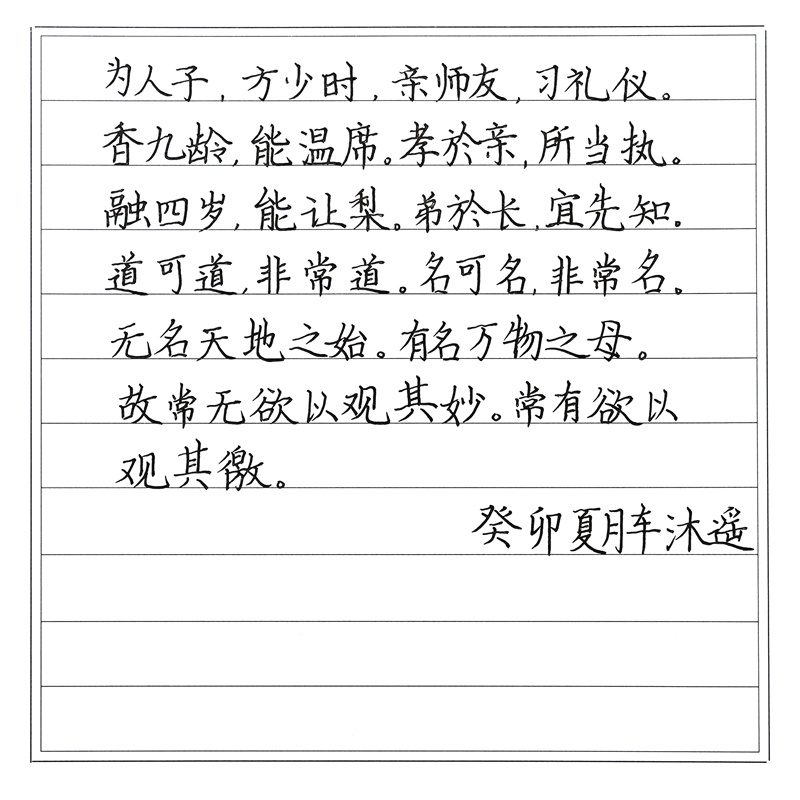 为人子，方少时，亲师友，习礼仪。
香九龄，能温席。孝於亲，所当执。
融四岁，能让梨。弟於长，宜先知。
道可道，非常道。名可名，非常名。
无名天地之始。有名万物之母。
故常无欲以观其妙。常有欲以
观其徼。
癸卯夏月车沐遥